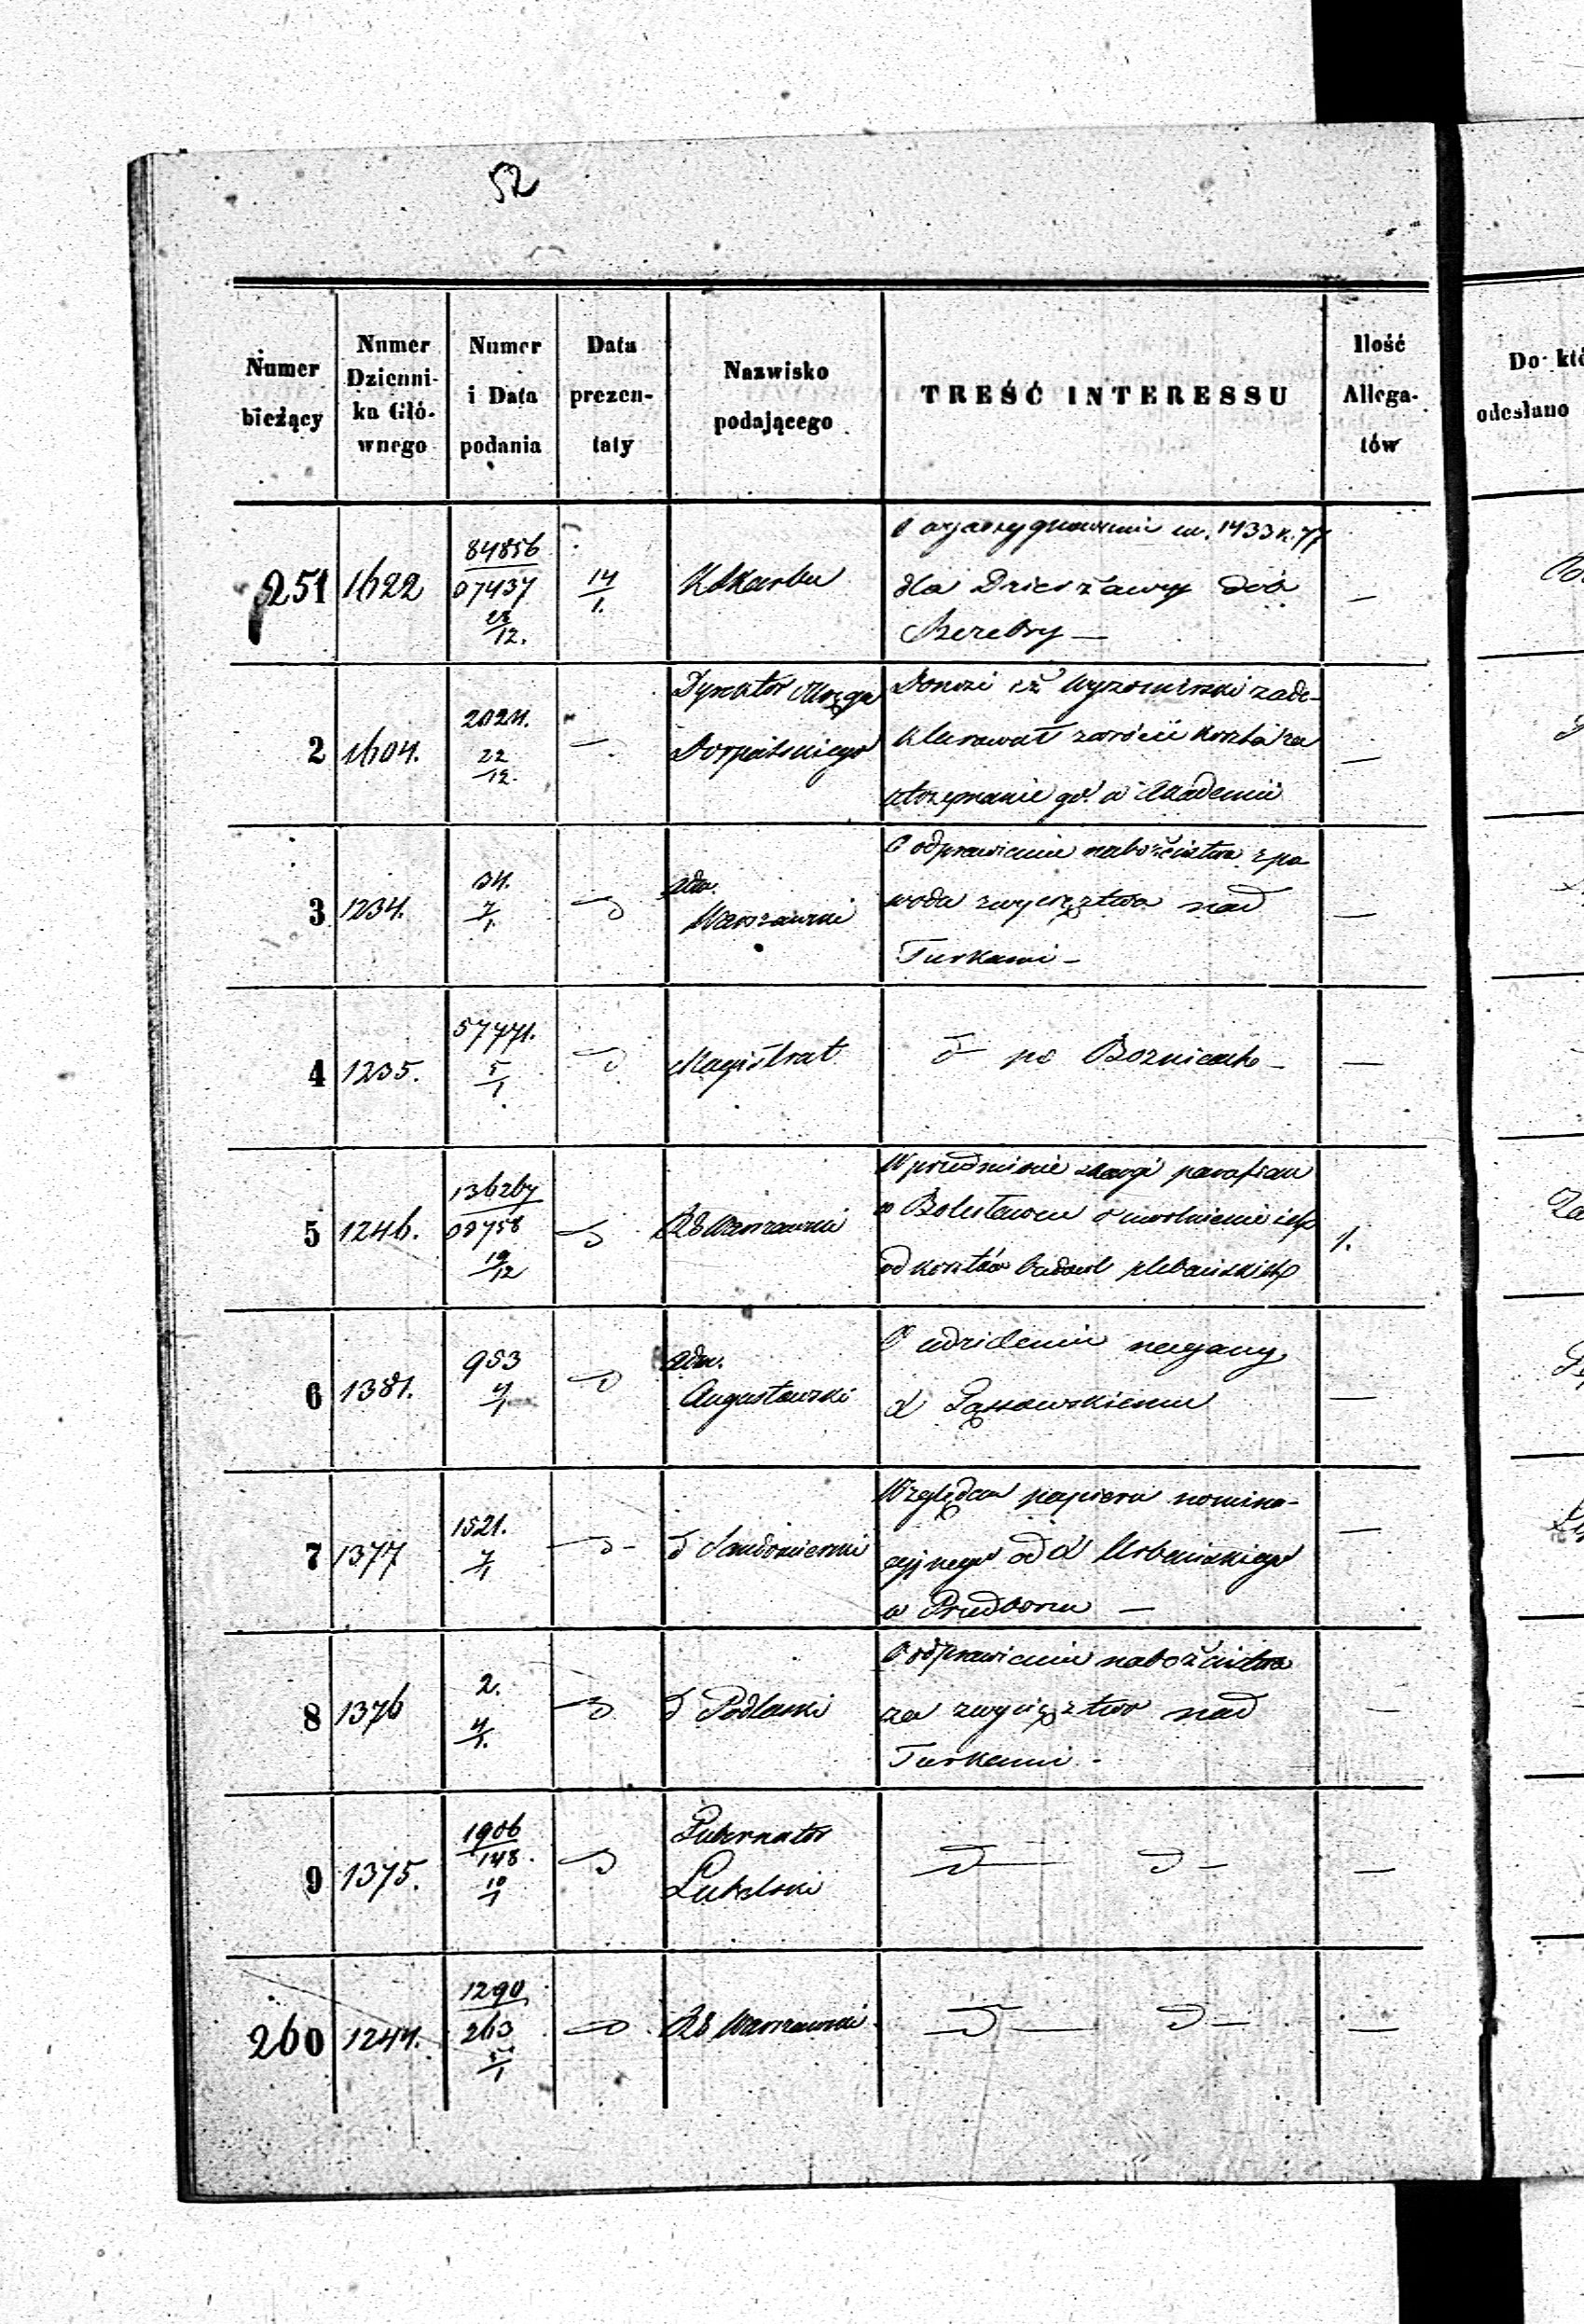 52
Numer bieżący
Numer Dzienni- ka Głó- wnego
Numer i Data podania
Data prezen- taty
Nazwisko podającego
TREŚĆ INTERESSU
Ilość Allega- tów
Do któ
odesłano
251 1622 84856 07437 23/12. 14/1. K Skarbu
O wyassygnowanie 1433 k. 77
dla Dzierżawcy dóbr
—
2 1604. 2024. 22/12. Dyrektor Okręgu
Dorpatskiego
Donosi iż Wyzomirski zade-
klarował zwrócić koszta za
utrzymanie go w Akademii
—
3 1234. 34. 7/1. d Adm.
Warszawski
O odprawienie nabożeństwa z po
wodu zwycięztwa nad
Turkami —
—
4 1235. 57771. 5/1 d Magistrat
d po Boznicach —
—
5 1246. 136267 09758 19/12 d RG Warszawski
W przedmiocie skargi parafian
w Bolesławcu o uwolnienie ich
od kosztów budowl plebańskich
1.
6 1381. 953 4/1 d Adm.
Augustowski
O udzielenie nagany
X Łąssowskiemu
—
7 1377 1521. 7/1 d d Sandomierski
Względem papieru nomina-
cyjnego od X Urbańskiego
w Przedborzu —
—
8 1376 2. 4/1. d d Podlaski
O odprawienie nabożeństwa
za zwycięztwo nad
Turkami -
—
9 1375. 1906 148. 10/1 d Gubernator
Lubelski
d — d —
—
260 1244. 1290 263 5/1 d RG Warszawski
d — d —
—